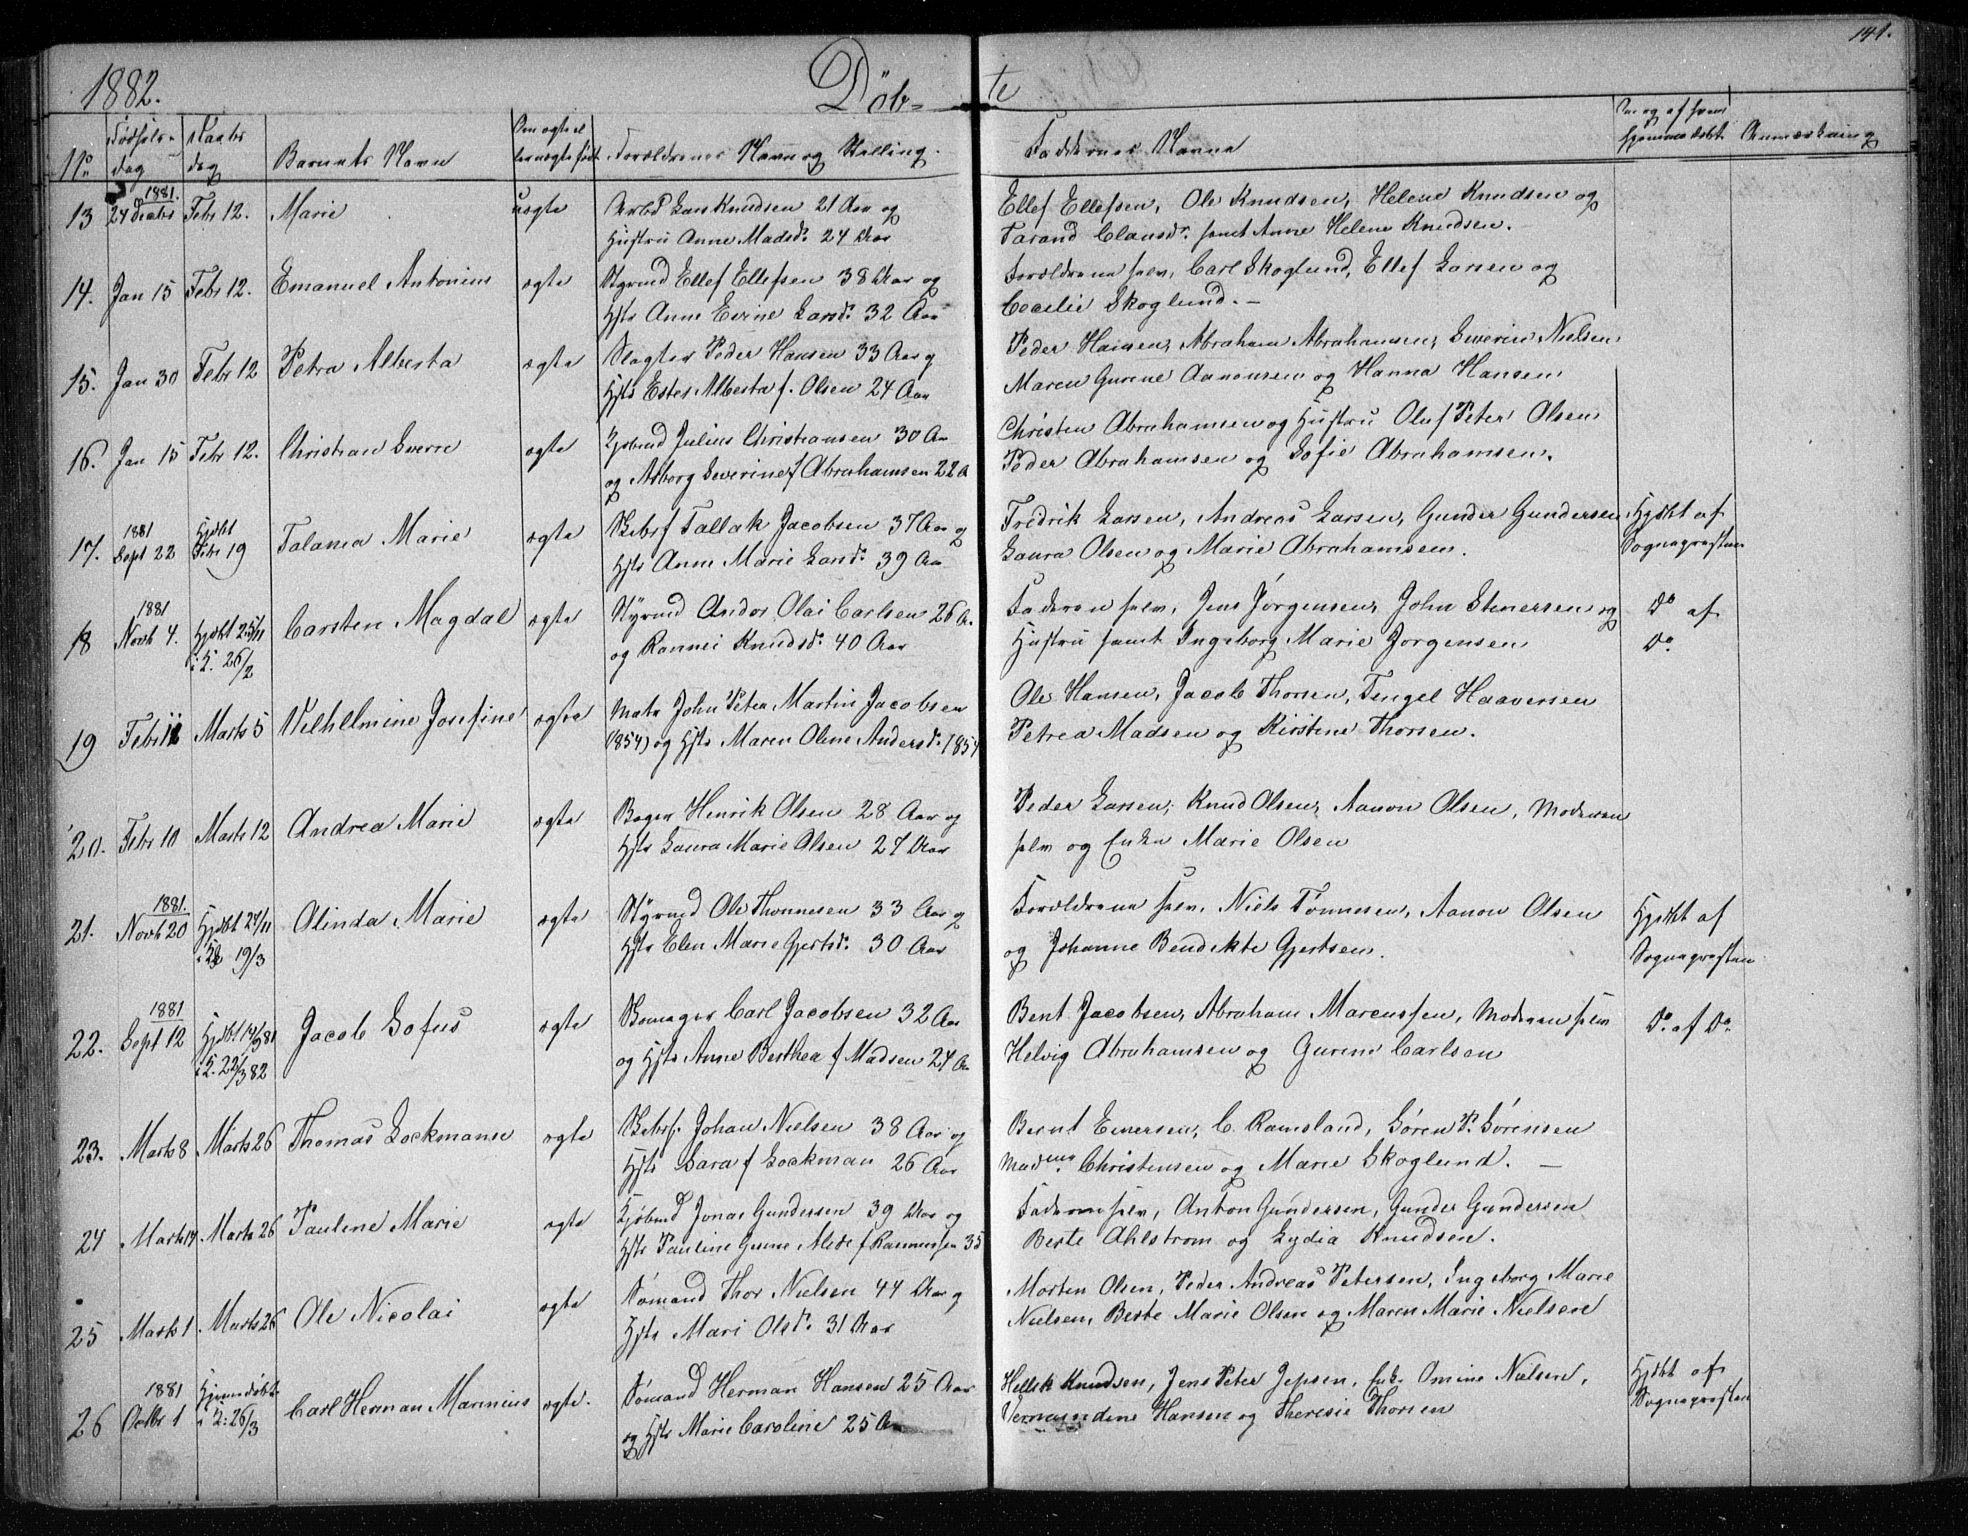 141.
1882.
Döb= te
No
Fødsels-
dag
Daabs
dag
Barnets Navn
Om ægte el
uægte født
Forældrenes Navn og Stilling.
Faddernes Navne
Om og af hvem
hjemmedøbt
Anmærkning
13 1881. 24 Decbr Febr 12. Marie uægte Arbd Lars Knudsen 21 Aar og
Hustru Anne Madsdr. 24 Aar
Ellef Ellefsen, Ole Knudsen, Helene Knudsen og
Tarand Clausdr. samt Anne Helene Knudsen.
14. Jan 15 Febr 12. Emanuel Antonius ægte Styrmd Ellef Ellefsen 38 Aar og
Hstr Anne Evine Larsdr. 32 Aar
Forældrene selv, Carl Skoglund, Ellef Larsen og
Cecilie Skoglund. —
15. Jan 30 Febr 12 Petra Alberta ægte Slagter Peder Hansen 33 Aar og
Hstr Ester Alberta f. Olsen 24 Aar
Peder Hansen, Abraham Abrahamsen, Severin Nielsen
Maren Gurine Aanonsen og Hanna Hansen
16. Jan 15 Febr 12. Christian Sverre ægte Kjøbmd Julius Christiansen 30 Aar
og Asborg Severine f Abrahamsen 22 A
Christen Abrahamsen og Hustru Oluf Peter Olsen
Peder Abrahamsen og Sofie Abrahamsen.
17. 1881 Sept 22 Hjdbt Febr 19 Talania Marie ægte Skibsf Tallak Jacobsen 37 Aar og
Hstr Anne Marie Larsdr. 39 Aar
Fredrik Larsen, Andreas Larsen, Gunder Gundersen
Laura Olsen og Marie Abrahamsen.
Hjdbt af
Sognepresten
18 1881 Novb 4. Hjdbt 25/11
i K. 26/2 Carsten Magdal ægte Styrmd Andor Olai Carlsen 26 A.
og Rannei Knudsdr. 40 Aar
Faderen selv, Jens Jörgensen, John Stenersen og
Hustru samt Ingeborg Marie Jorgensen
Do af
Do.
19 Febr 11 Marts 5 Vilhelmine Josefine ægte Matr John Peter Martin Jacobsen
(1854) og Hstr Maren Oline Andersdr. 1854
Ole Hansen, Jacob Thorsen, Tengel Haaversen
Petrea Madsen og Kirstine Thorsen.
20. Febr 10 Marts 12 Andrea Marie ægte Bager Henrik Olsen 28 Aar og
Hstr Laura Marie Olsen 27 Aar
Peder Larsen, Knud Olsen, Aanon Olsen, Moderen
selv og Enke Marie Olsen
21. 1881. Novb 20 Hjdbt 27/11
i K 19/3 Olinda Marie ægte Styrmd Ole Thonnesen 33 Aar og
Hstr Elen Marie Gjertsdr. 30 Aar
Forældrene selv, Niels Tönnesen, Aanon Olsen
og Johanne Bendikte Gjertsen.
Hjdbt af
Sognepresten
22. 1881 Sept 12 Hjdbt 14/9 81
i K. 22/3 82 Jacob Sofus ægte Carl Jacobsen 32 Aar
og Hstr Anne Berthea f Madsen 24 Aar
Bent Jacobsen, Abraham Marcussen, Moderen selv
Helvig Abrahamsen og Gurine Carlsen
Do. af Do.
23. Marts 8 Marts 26 Thomas Lockmann ægte Skibsf. Johan Nielsen 38 Aar og
Hstr Sara f Lockman 26 Aar
Bernt Emersen, C. Ramsland, Sören P. Sörensen
Madme Christensen og Marie Skoglund. —
24 Marts 14 Marts 26 Pauline Marie ægte Kjöbmd Jonas Gundersen 39 Aar og
Hstr Pauline Gurine Alede f Rasmussen 35
Faderen selv, Anton Gundersen, Gunder Gundersen
Berte Ahlstrom og Lydia Knudsen.
25 Marts 1 Marts 26 Ole Nicolai ægte Sömand Thor Nielsen 44 Aar og
Hstr Mari Olsdr. 31 Aar
Morten Olsen, Peder Andreas Petersen, Ingeborg Marie
Nielsen, Berte Marie Olsen og Maren Marie Nielsen
26 1881 Octbr 1 Hjemmedøbt
i K: 26/3 Carl Herman Marinius ægte. Sömand Herman Hansen 25 Aar
og Hstr Marie Caroline 25 Aar
Hellik Knudsen, Jens Peter Jepsen, Enke Omine Nielsen,
Vernundine Hansen og Theresie Thorsen
Hjdbt af
Sognepresten